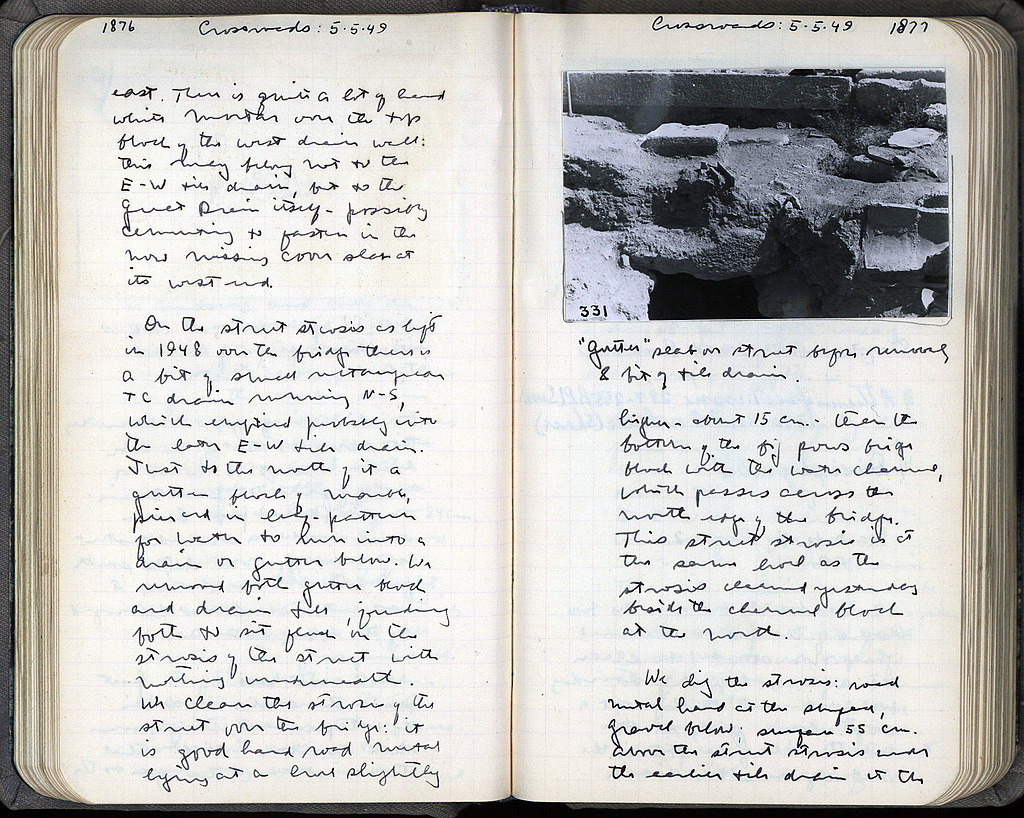 1876 Crossroads: 5-5-49
east. There is quite a lot of hard
white mortar over the top
block of the west drain wall:
this may belong not to the
E-W tile drain, but to the
Great Drain itself - possibly
cementing to fasten in the
now missing cover slab at
its west end.
On the street strosis as left
in 1948 over the bridge there is
a bit of small rectangular
TC drain running N-S,
which emptied probably into
the later E-W tile drain.
Just to the north of it a
gutter block of marble,
pierced in leaf-pattern
for water to run into a
drain or gutter below. We
removed both gutter block
and drain tile, finding
both to sit flush on the
strosis of the street with
nothing underneath.
We clean the strosis of the
street over the bridge: it
is good hard road metal
lying at a level slightly
Crossroads: 5-5-49 1877
331
"gutter" slab on street before removal
& bit of tile drain.
higher - about 15 cm. - than the
bottom of the big poros bridge
block with the water channel,
which passes across the
north edge of the bridge.
This street strosis is at
the same level as the
strosis cleaned yesterday
beside the channel block
at the north.
We dig the strosis: road
metal hard at the surface,
gravel below; surface 55 cm.
above the street strosis under
the earlier tile drain at the